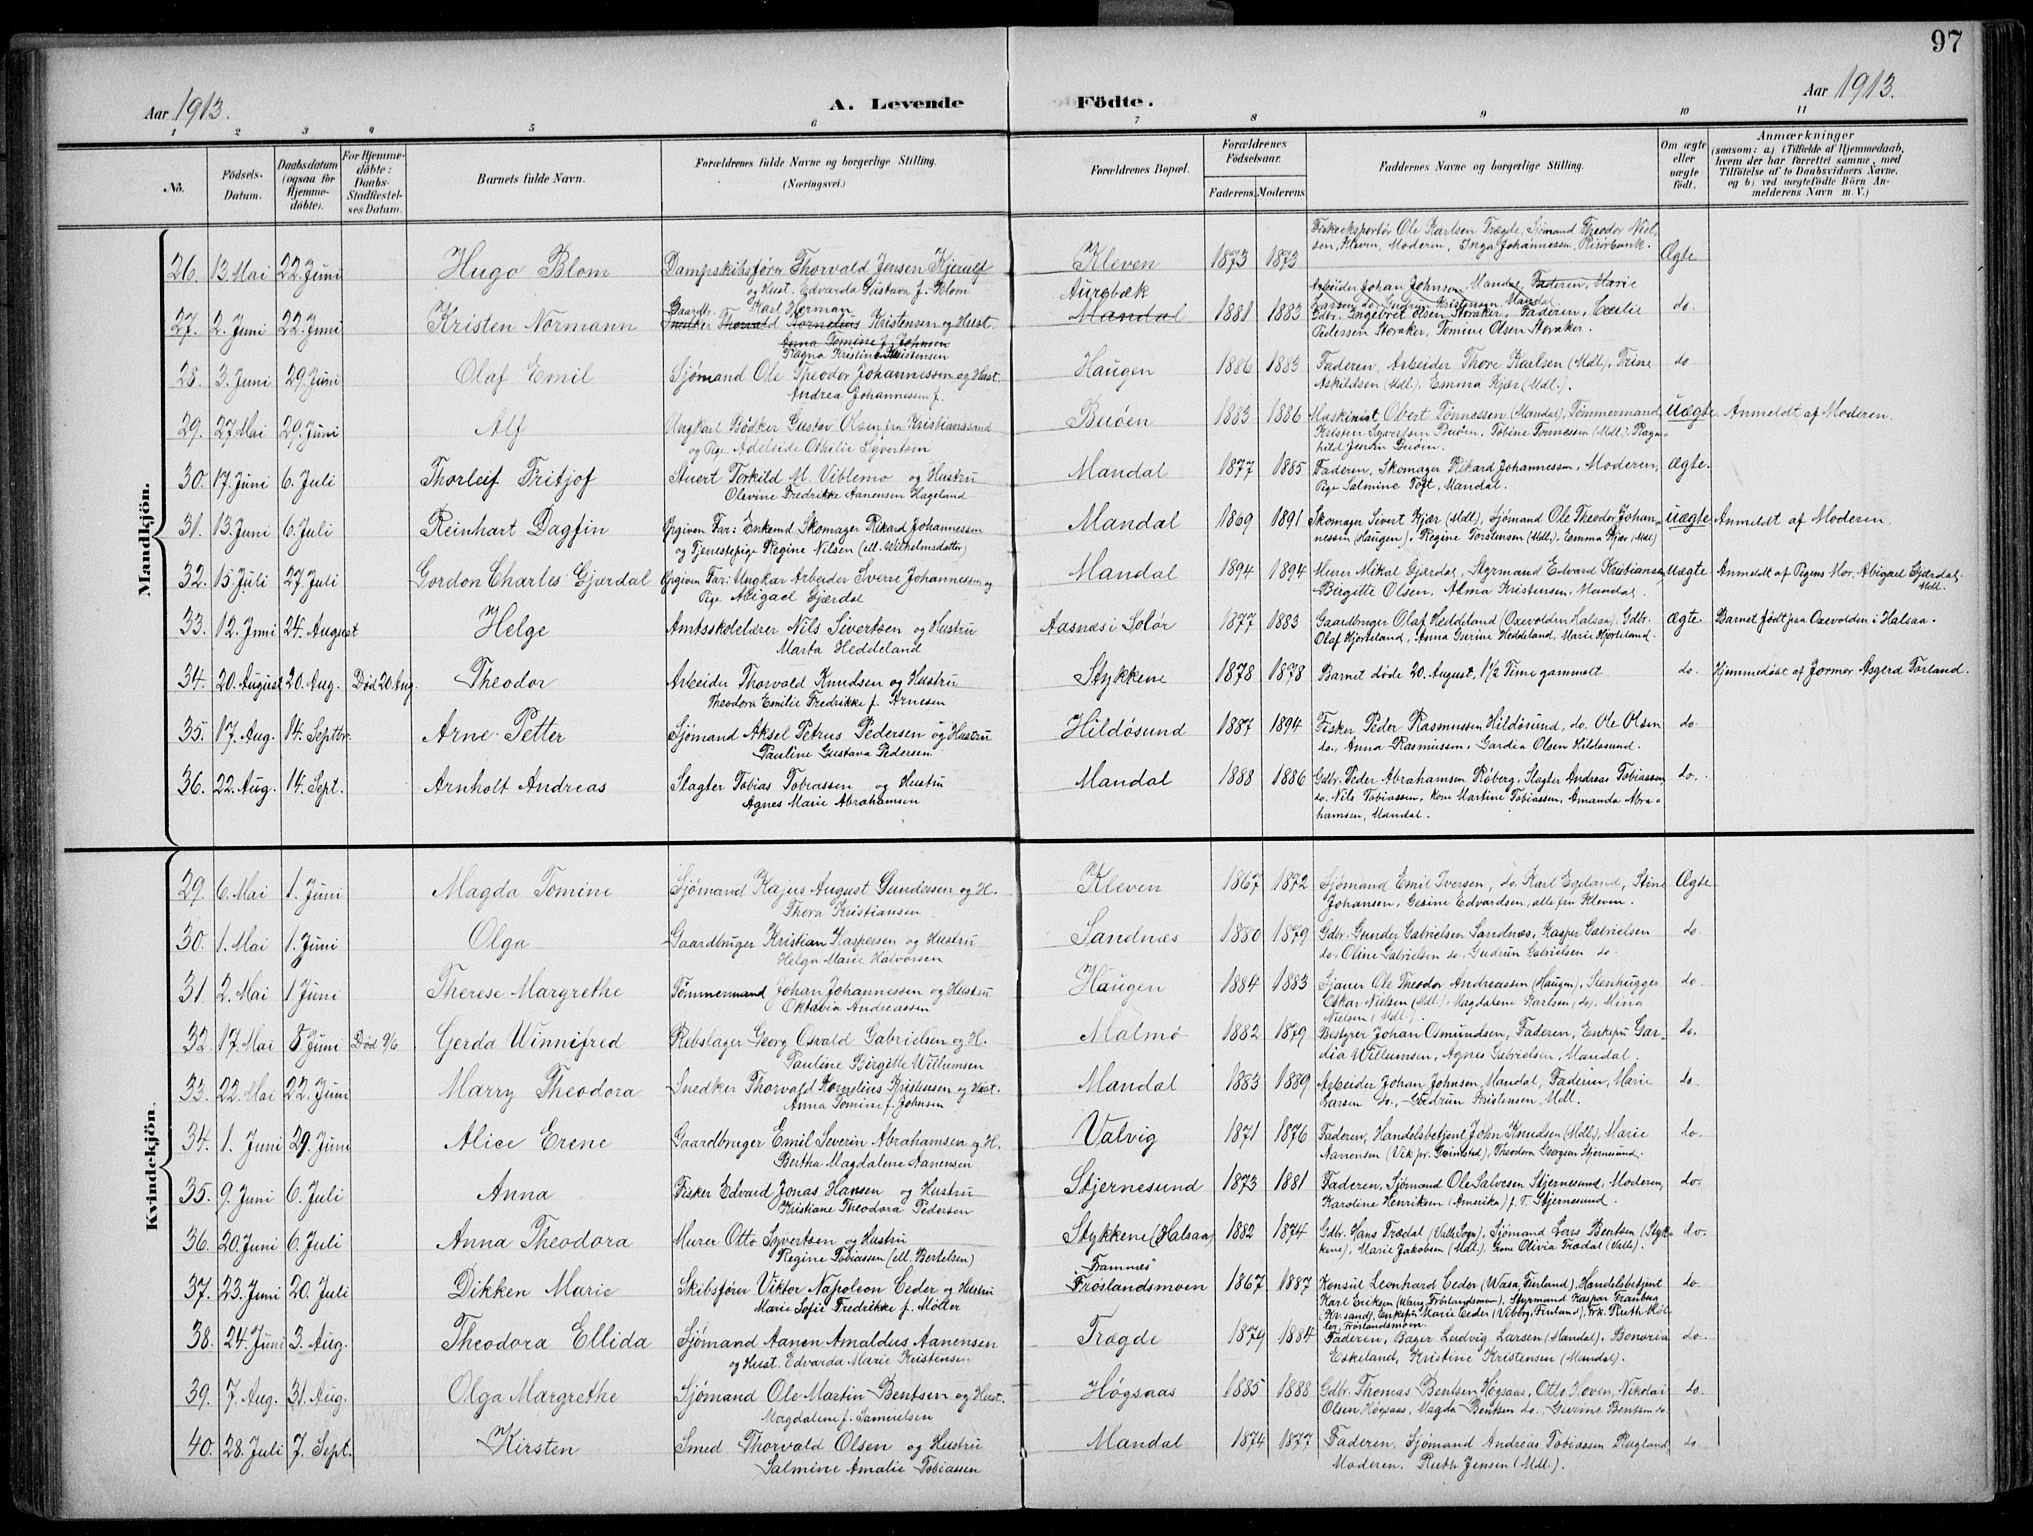 97
Aar 1913.
A. Levende Födte.
Aar 1913.
1 2 3 4 5 6 7 8 9 10 11
No.
Födsels-Datum.
Daabsdatum (ogsaa for Hjemmedöbte).
For Hjemmedöbte: Daabs-Stadfæstelses Datum.
Barnets fulde Navn.
Forældrenes fulde Navne og borgerlige Stilling. (Næringsvei.)
Forældrenes Bopæl.
Forældrenes Födselsaar.
Faderens. Moderens.
Faddernes Navne og borgerlige Stilling.
Om ægte eller uægte födt.
Anmærkninger
(saasom: a) i Tilfælde af Hjemmedaab, hvem der har forrettet samme, med Tilföielse af to Daabsvidners Navne, og b) ved uægtefödte Börn Anmelderens Navn m. V.)
Mandkjön.
26. 13. Mai 22. Juni Hugo Blom Dampskibsfører Thorvald Jensen Kjerulf
og Hust. Edvarda Gustava f. Blom
Kleven 1873 1873 Fiskeeksportør Ole Karlsen Trægde, Sjømand Theodor Nielsen, Kleven, Moderen, Inga Johannessen, Risørbank. Ægte
27. 2. Juni 22. Juni Kristen Normann Gaardbr. Karl Herman
Snedker Thorvald Kornelius Kristensen og Hust.
Anna Tomine f. Johnsen
Ragna Kristine Kristensen
Aurebæk
Mandal 1881 1883 Arbeider Johan Johnsen, Mandal, Faderen, Marie
Larsen do. Gudrun Kristensen, Mandal.
Gdbr. Ingebret Olsen Storaker, Faderen, Cecilie
Pedersen Storaker, Tomine Olsen Storaker. do.
28. 3. Juni 29. Juni Olaf Emil Sjømand Ole Theodor Johannessen og Hust.
Andrea Johannessen f.
Haugen 1886 1883 Faderen, Arbeider Thore Karlsen (Mdl), Trine
Askildsen (Mdl.), Emma Kjær (Mdl.). do
29. 27. Mai 29. Juni Alf Ungkarl Bødker Gustav Olsen fra Kristianssand
og Pige Adeleide Othilie Syvertsen
Buøen 1883 1886 Maskinist Obert Tønnessen (Mandal), Tømmermand
Kristen Syvertsen Buøen, Tobine Tønnessen (Mdl.), Ragnhild Jensen Buøen. Uægte. Anmeldt af Moderen.
30. 17. Juni 6. Juli Thorleif Fritjof Stuert Torkild M. Viblemo og Hustru
Olevine Fredrikke Aanensen Hageland
Mandal 1877 1885 Faderen, Skomager Rikard Johannessen, Moderen,
Pige Salmine Foft, Mandal. Ægte.
31. 13. Juni 6. Juli Reinhart Dagfin Opgiven Far: Enkemd. Skomager Rikard Johannessen
og Tjenestepige Regine Nilsen (ell. Wilhelmsdatter)
Mandal 1869 1891 Skomager Sivert Kjær (Mdl), Sjømand Ole Theodor Johannessen (Haugen). Regine Torstensen (Mdl). Emma Kjær (Mdl) Uægte Anmeldt af Moderen.
32. 15. Juli 27. Juli Gordon Charles Gjærdal Opgiven Far: Ungkar Arbeider Sverre Johannessen og
Pige Abigael Gjærdal
Mandal 1894 1894 Murer Mikal Gjærdal, Styrmand Edvard Kristiansen
Birgitte Olsen, Alma Kristensen, Mandal. Uægte Anmeldt af Pigens Mor, Abigael Gjærdal, Mdl.
33. 12. Juni 24. August Helge Amtsskolelærer Nils Sivertsen og Hustru
Marta Heddeland
Aasnæs i Solør 1877 1883 Gaardbruger Olaf Heddeland (Oxevolden, Halsaa), Gdbr.
Olaf Hjorteland, Anna Gurine Heddeland, Marie Hjorteland. Ægte. Barnet født paa Oxevolden i Halsaa.
34. 20. August 20. Aug. Død 20 Aug. Theodor Arbeider Thorvald Knudsen og Hustru
Theodora Emilie Fredrikke f. Arnesen
Stykkene 1878 1878 Barnet døde 20. August, 1½ Time gammelt do. Hjemmedøbt af Jormor Asgerd Torland.
35. 17. Aug. 14. Septbr. Arne Petter Sjømand Aksel Petrus Pedersen og Hustru
Pauline Gustava Pedersen
Hildøsund 1887 1894 Fisker Peder Rasmussen Hildøsund, do. Ole Olsen
do. Anna Rasmussen, Gardia Olsen Hildøsund. do.
36. 22. Aug. 14. Sept. Arnholt Andreas Slagter Tobias Tobiassen og Hustru
Agnes Marie Abrahamsen
Mandal 1888 1886 Gdbr. Peder Abrahamsen Røberg, Slagter Andreas Tobiassen
do. Nils Tobiassen, Kone Martine Tobiassen, Amanda Abrahamsen, Mandal. do.
Kvindekjön.
29. 6. Mai 1. Juni Magda Tomine Sjømand Kajus August Gundersen og H.
Thora Kristiansen
Kleven 1867 1872 Sjømand Emil Iversen, do. Karl Egeland, Stine
Johansen, Gesine Edvardsen, alle fra Kleven. Ægte
30. 1. Mai 1. Juni Olga Gaardbruger Kristian Kaspersen og Hustru
Helga Marie Halvorsen
Sandnæs 1880 1879 Gdbr. Gunder Gabrielsen Sandnæs, Kasper Gabrielsen
do. Oline Gabrielsen do. Gudrun Gabrielsen do. do.
31. 2. Mai 1. Juni Therese Margrethe Tømmermand Johan Johannessen og Hustru
Oktavia Andreassen
Haugen 1884 1883 Sjauer Ole Theodor Andreassen (Haugen), Stenhugger
Eskar Nielsen (Mdl.) Magdalene Karlsen (do), Mina
Nielsen (Mdl.) do.
32. 17. Mai 8 Juni Død 9/6 Gerda Winnifred Rebslager Georg Osvald Gabrielsen og H.
Pauline Birgitte Willumsen
Malmø 1882 1879 Bestyrer Johan Osmundsen, Faderen, Enkefru Gardia Willumsen, Agnes Gabrielsen, Mandal. do.
33. 22. Mai 22. Juni Marry Theodora Snedker Thorvald Kornelius Kristensen og Hust.
Anna Tomine f. Johnsen
Mandal 1883 1889 Arbeider Johan Johnsen, Mandal, Faderen, Marie
Larsen do., Gudrun Kristensen, Mdl. do.
34. 1. Juni 29. Juni Alice Erene Gaardbruger Emil Severin Abrahamsen og H.
Bertha Magdalene Aanensen
Valvig 1871 1876 Faderen, Handelsbetjent John Knudsen (Mdl.), Marie
Aanensen (Vik pr. Grimstad), Theodora Georgsen Hjernesund. do.
35. 9. Juni 6. Juli Anna Fisker Edvard Jonas Hansen og Hustru
Kristiane Theodora Pedersen
Stjernesund 1873 1881 Faderen, Sjømand Ole Salvesen Stjernesund, Moderen,
Karoline Henriksen (Amerika) f. T. Stjernesund. do.
36. 20. Juni 6. Juli Anna Theodora Murer Otto Syvertsen og Hustru
Regine Tobiassen (ell. Bertelsen)
Stykkene (Halsaa) 1882 1874 Gdbr. Hans Trædal (Valle Sogn), Sjømand Lars Bentsen (Stykkene), Marie Jakobsen (Mdl.), Kone Olivia Trædal (Valle). do.
37. 23. Juni 20. Juli Dikken Marie Skibsfører Viktor Napoleon Ceder og Hustru
Marie Sofie Fredrikke f. Møller
"Framnes"
Frøslandsmoen 1867 1887 Konsul Leonhard Ceder (Wasa, Finland), Handelsbetjent
Karl Eriksen (Wang, Frøslandsmoen), Styrmand Kaspar Tranberg
(Kr.sand), Enkefru Marie Ceder (Viborg, Finland), Frk. Ruth Møller, Frøslandsmoen. do.
38. 24. Juni 3. Aug. Theodora Ellida Sjømand Aanen Arnaldus Aanensen
og Hust. Edvarda Marie Kristensen
Trægde 1879 1884 Faderen, Bager Ludvig Larsen (Mandal). Bonoria
Eskeland, Kristine Kristensen (Mandal). do.
39. 7. Aug. 31. Aug. Olga Margrethe Sjømand Ole Martin Bentsen og Hust.
Magdalene f. Samuelsen
Høgsaas 1885 1888 Gdbr. Thomas Bentsen Høgsaas, Otto Hoven, Nikolai
Olsen, Høgsaas, Magda Bentsen do., Gurine Bentsen do. do.
40. 28. Juli 7. Sept. Kirsten Smed Thorvald Olsen og Hustru
Salmine Amalie Tobiassen
Mandal 1874 1877 Faderen, Sjømand Andreas Tobiassen Rugland
Moderen. Ruth Jensen (Mdl.). do